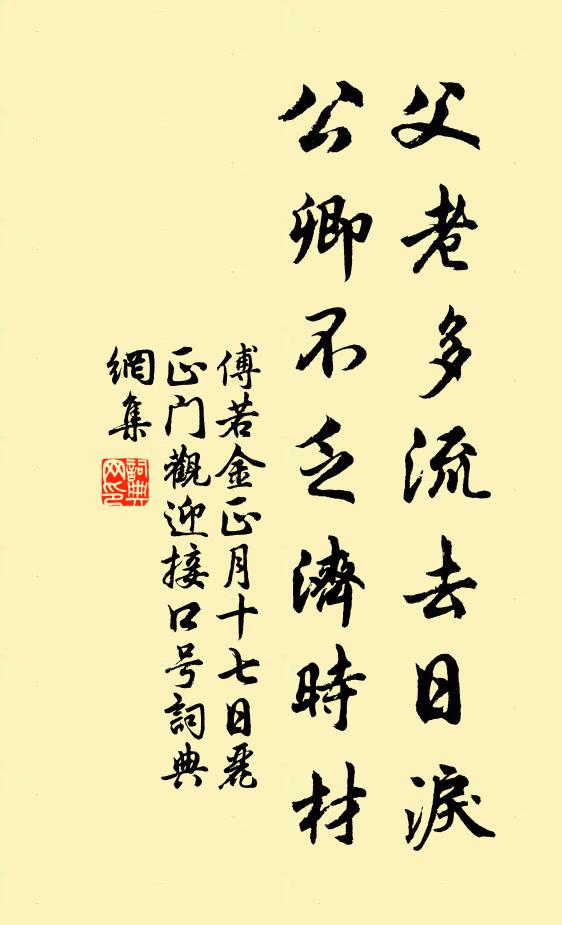 父老多流去日淚
公卿不乏濟時材
傅若金正月十七日麗
正门觀迎接口号詞典
網集
詞典
网印